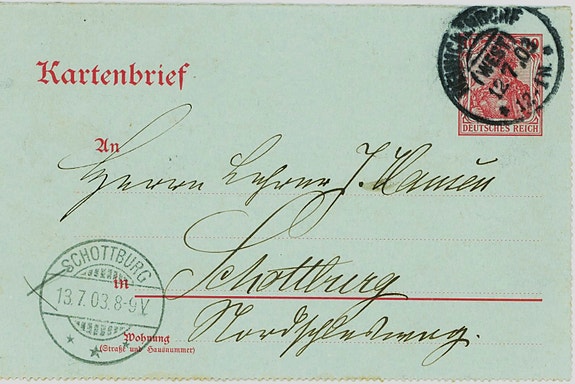 Kartenbrief
REINICKENDORF
(WEST)
12.7.03
12-1N.
DEUTSCHES REICH
An
Herrn Lehrer J. Hansen
SCHOTTBURG
13.7.03.8-9V.
in
Schottburg
Wohnung
(Straße und Hausnummer)
Nordschleswig.